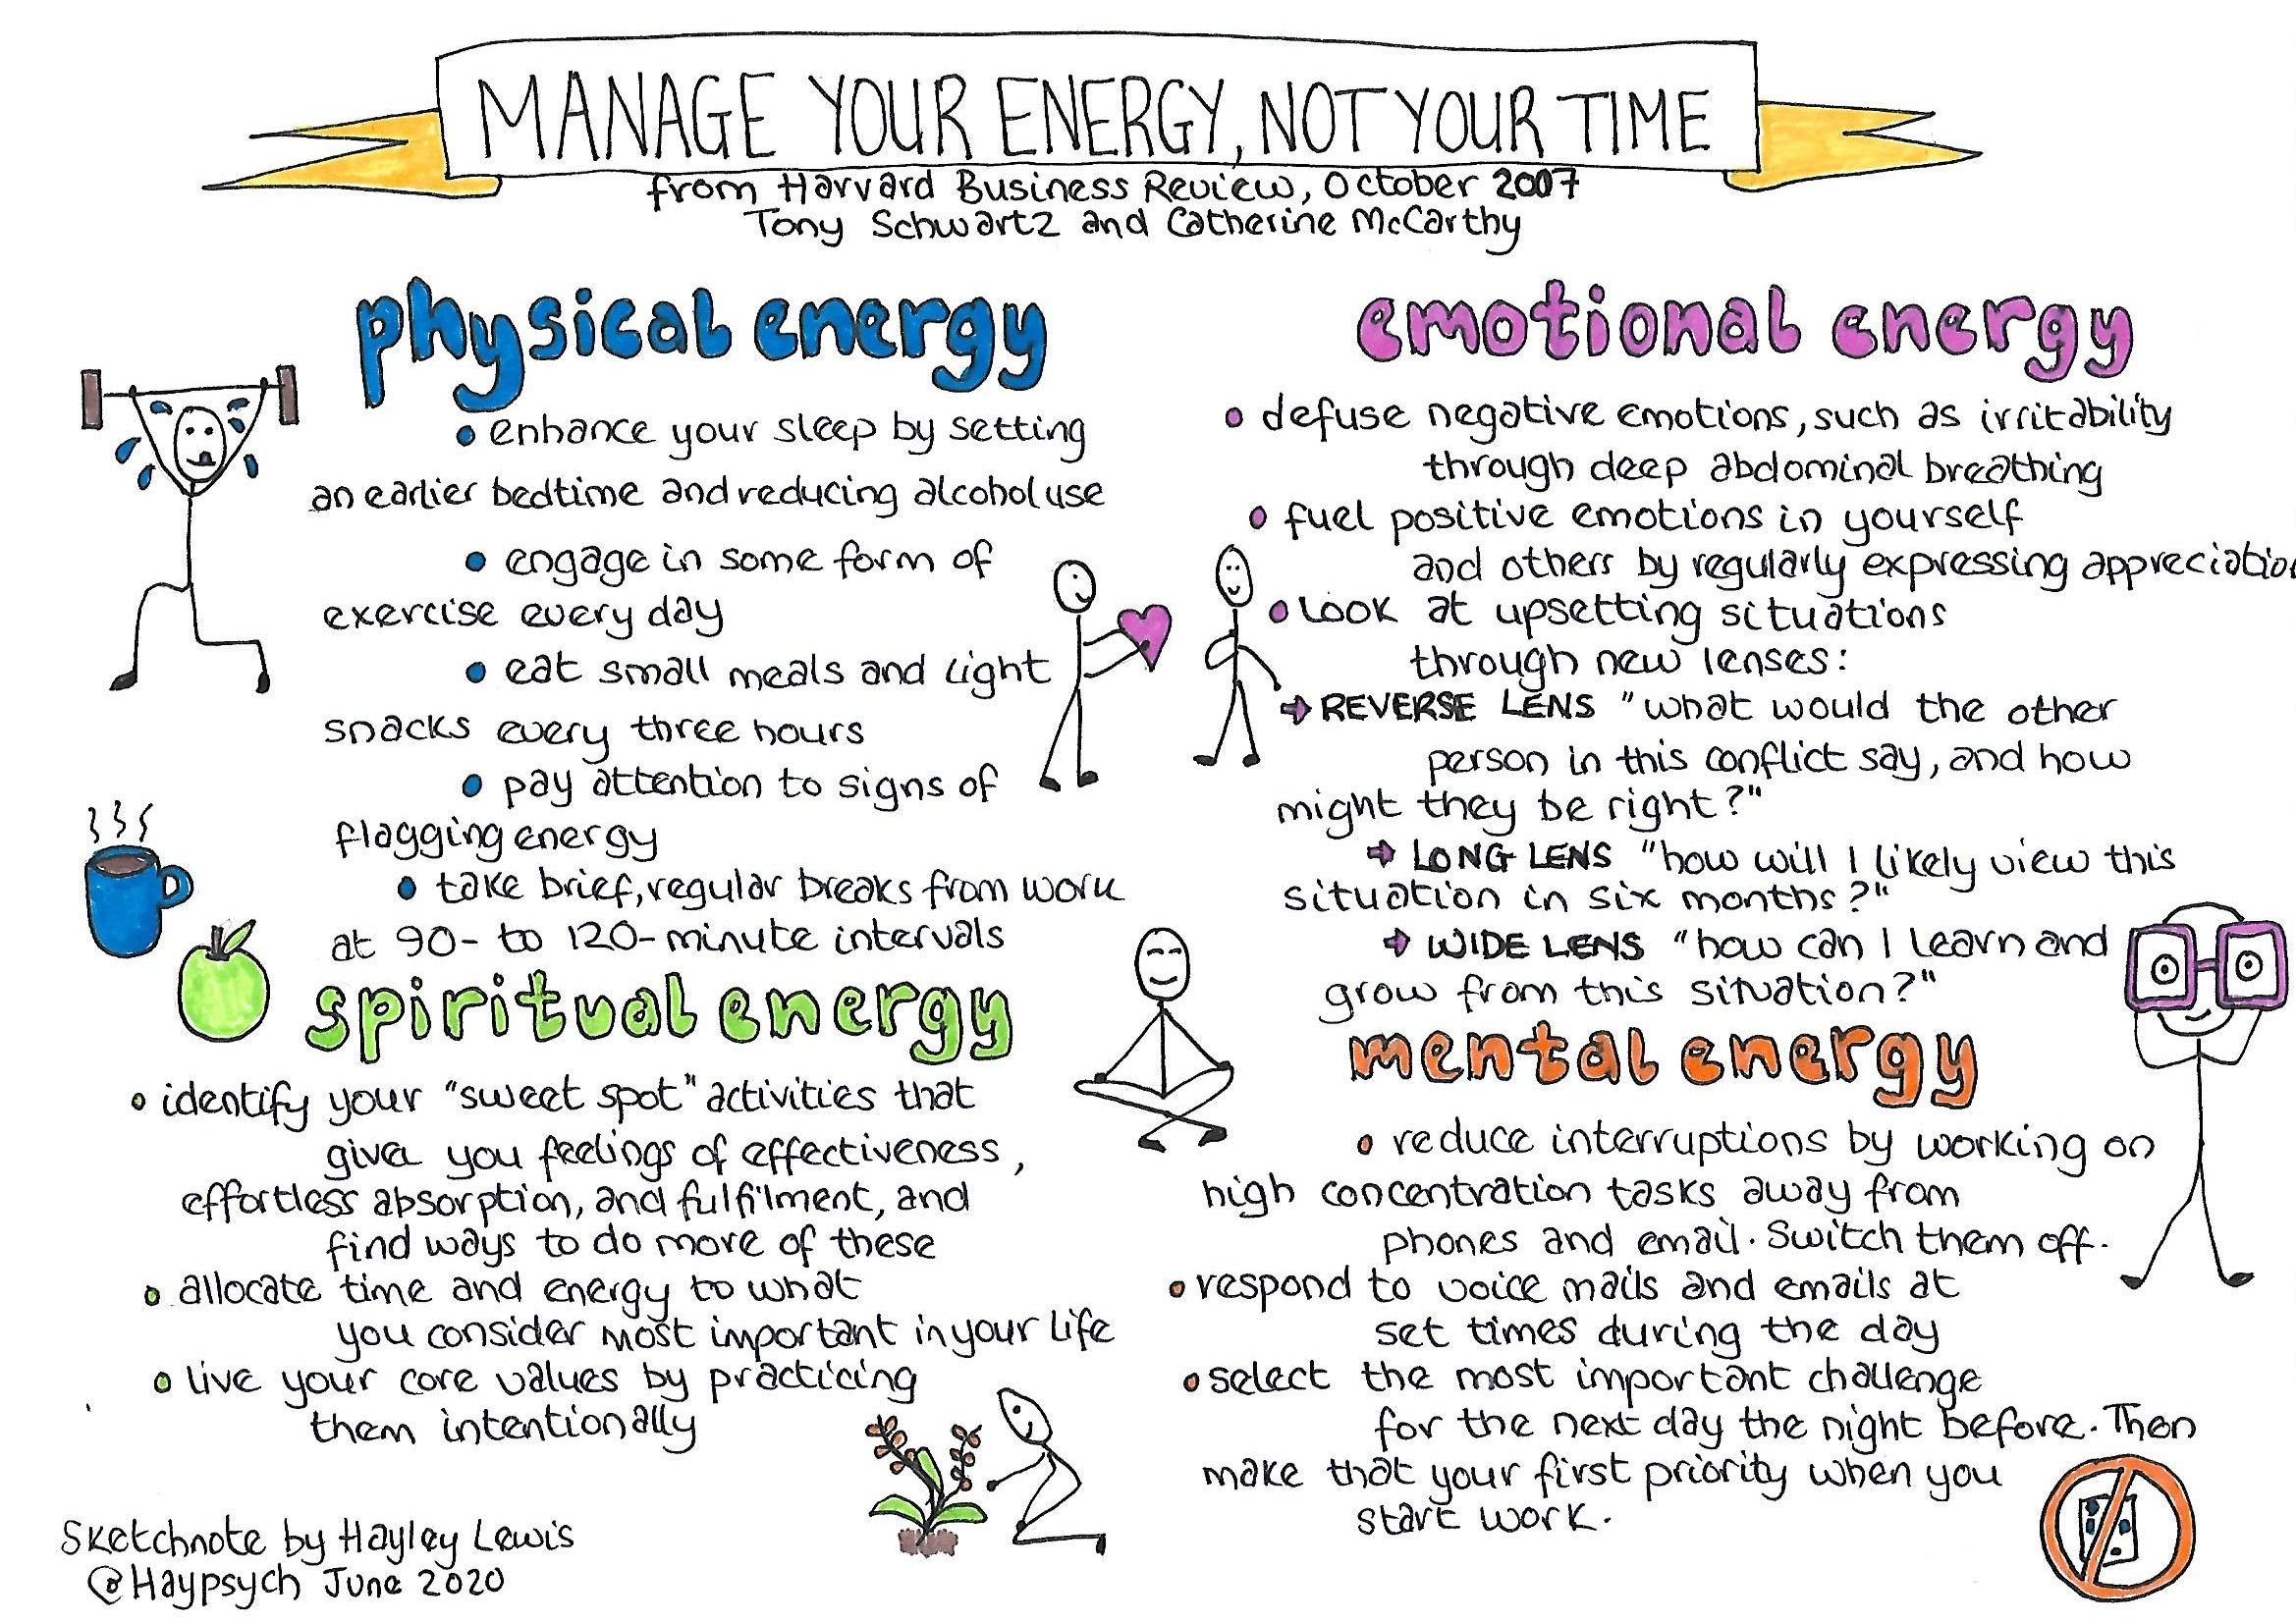 MANAGE YOUR ENERGY, NOT YOUR TIME
from Harvard Business Review, October 2007
Tony Schwartz and Catherine McCarthy
physical energy
• enhance your sleep by setting
an earlier bedtime and reducing alcohol use
• engage in some form of
exercise every day
• eat small meals and light
snacks every three hours
• pay attention to signs of
flagging energy
• take brief, regular breaks from work
at 90- to 120-minute intervals
spiritual energy
• identify your "sweet spot" activities that
give you feelings of effectiveness,
effortless absorption, and fulfilment, and
find ways to do more of these
• allocate time and energy to what
you consider most important in your life
• live your core values by practicing
them intentionally
Sketchnote by Hayley Lewis
@Haypsych June 2020
emotional energy
• defuse negative emotions, such as irritability
through deep abdominal breathing
• fuel positive emotions in yourself
and others by regularly expressing appreciation
• Look at upsetting situations
through new lenses:
→ REVERSE LENS "what would the other
person in this conflict say, and how
might they be right?"
→ LONG LENS "how will I likely view this
situation in six months?"
→ WIDE LENS "how can I learn and
grow from this situation?"
mental energy
• reduce interruptions by working on
high concentration tasks away from
phones and email. Switch them off.
• respond to voice mails and emails at
set times during the day
• select the most important challenge
for the next day the night before. Then
make that your first priority when you
start work.